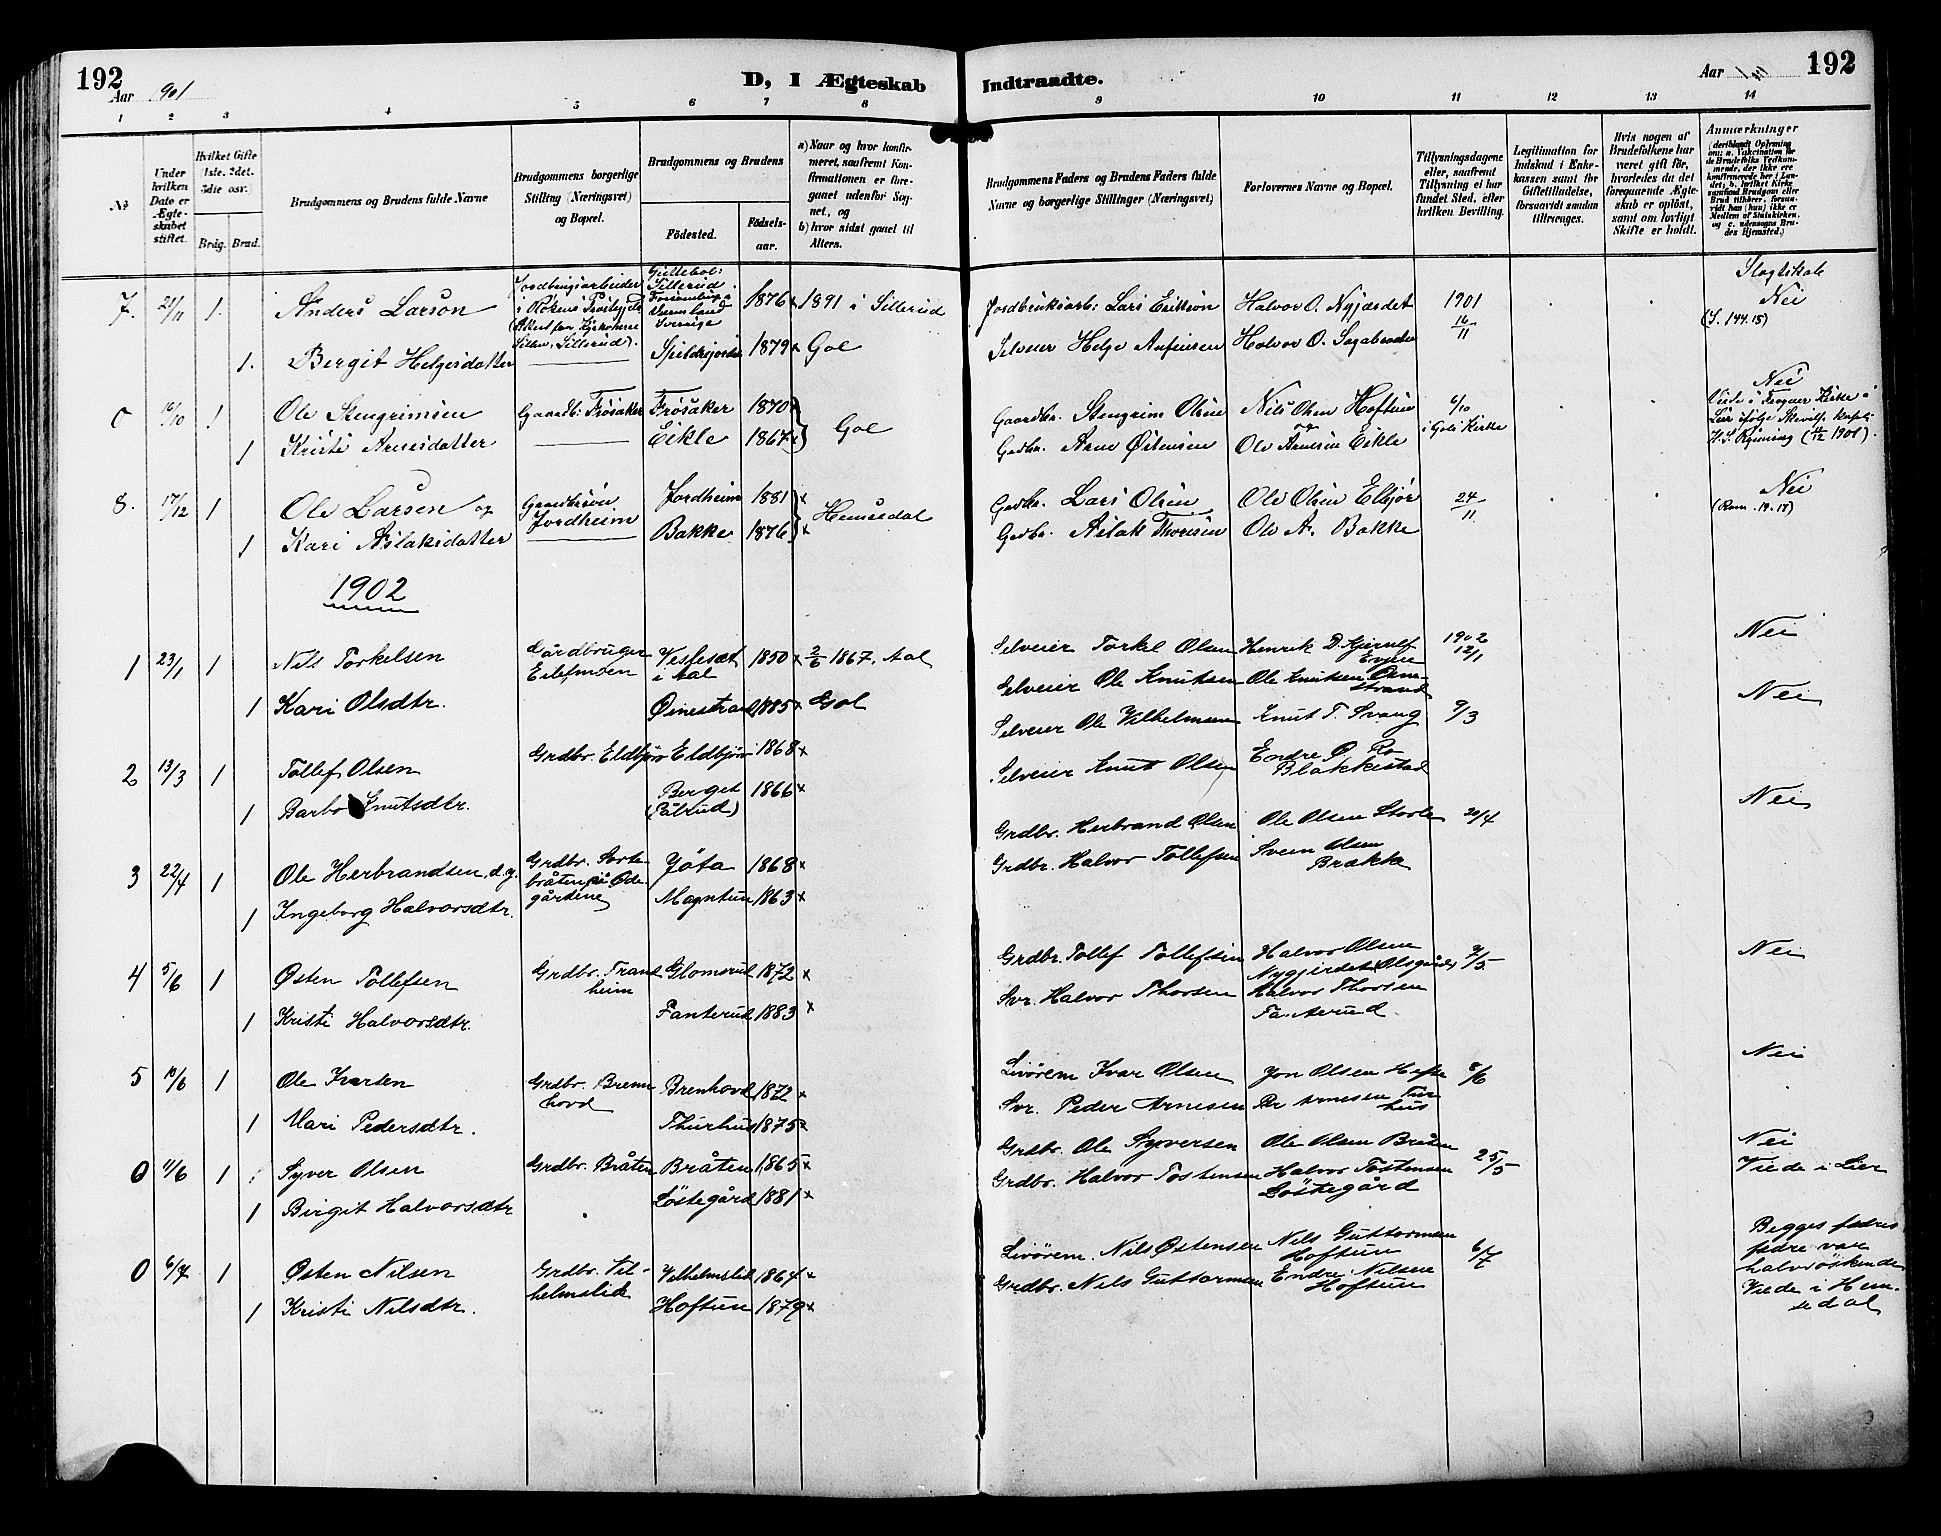 192
Aar 1901
D, I Ægteskab Indtraadte.
Aar 192
1 2 3 4 5 6 7 8 9 10 11 12 13 14
№
Under hvilken Dato er Ægteskabet stiftet.
Hvilket Gifte 1ste, 2det, 3die osv.
Brdg. Brud.
Brudgommens og Brudens fulde Navne
Brudgommens borgerlige Stilling (Næringsvei) og Bopæl.
Brudgommens og Brudens
Födested. Födselsaar.
a) Naar og hvor konfirmeret, saafremt Konfirmationen er foregaaet udenfor Sognet, og b) hvor sidst gaaet til Alters.
Brudgommens Faders og Brudens Faders fulde Navne og borgerlige Stillinger (Næringsvei)
Forlovernes Navne og Bopæl.
Tillysningsdagene eller, saafremt Tillysning ei har fundet Sted, efter hvilken Bevilling.
Legitimation for Indskud i Enkekassen samt for Giftetilladelse, forsaavidt saadan tiltrænges.
Hvis nogen af Brudefolkene har været gift för, hvorledes da det foregaaende Ægteskab er oplöst, samt om lovligt Skifte er holdt.
Anmærkninger
7. 21/11 1. Anders Larson Jordbrugsarbeider 1876 x 1891 i Sillerud Jordbruksarb: Lars Erikson Halvor O. Nyjordet 1901 16/11 Slægtskab Nei (S. 144.15)
1. Bergit Helgesdatter 1879 x Gol Selveier Helge Anfinsen Halvor O.
0 16/10 1 Ole Stengrimsen Gaardb: Frösaker Frösaker 1870 x Gol Gaardbr. Stengrim Olsen Nils Olsen Hoftun og 6/10 i Gols Kirke Nei
1 Kristi Arnesdatter Eikle 1867 x Gadbr. Arne Östensen Ole Arnesen Eikle
8. 17/12 1 Ole Larsen og Gaardbrsön Jordheim Jordheim 1881 Hemsedal Gadbr. Lars Olsen Ole Olsen Elbjör 24/11. Nei
1 Kari Aslaksdatter Bakke 1876 x Gadbr. Aslak Thoresen Ole A. Bakke
1902
1 23/1 1 Nils Torkelsen Gårdbruger Eilefmoen Vesfeset i Aal 1850 x 2/6 1867, Aal Selveier Torkel Olsen Henrik D. Gjernlf 1902 12/1 Nei
1 Kari Olsdtr. Öinestrand 1885 x Gol Selveier Ole Knutsen Ole Knutsen Öinestrand
2 13/3 1 Tollef Olsen Grdbr. Eldbjör Eldbjör 1868 x Selveier Ole Vilhelmsen Knut T. Svang 9/3 Nei
1 Barbo Knutsdtr. Berget (Pålrud) 1866 x Selveier Knut Olsen Endre O. Ro Blakkestad
3 22/4 1 Ole Herbrandsen, d.y. Grdbr. Sortebråten på Ödegårdene Jöta 1868 x Grdbr. Herbrand Olsen Ole Olsen Storle 20/4 Nei
1 Ingeborg Halvorsdtr. Magntun 1863 x Grdbr. Halvor Tollefsen Svein Olsen Brækka
4 5/6 1 Østen Tollefsen Grdbr. Trantheim Glomsrud 1872 x Grdbr. Tollef Tollefsen Halvor Olsen Nygjerdet (Olsgård) Nei
1 Kristi Halvorsdtr. Fanterud 1883 x Svr. Halvor Thorsen Halvor Thorsen
5 10/6 1 Ole Ivarsen Grdbr. Brennhovd Brenhovd 1872 x Livörem Ivar Olsen Jon Olsen Hefte 8/6 Nei
1 Mari Pedersdtr. Thurhus 1875 x Svr. Peder Arnesen Per Arnesen Turhus
0 11/6 1 Syver Olsen Grdbr. Bråten Bråten 1865 x Grdbr. Ole Syversen Ole Olsen Bråten 25/5 Nei
Viede i Lier
1 Birgit Halvorsdtr Löstegård 1881 x Grdbr. Halvor Tostensen Halvor Tostensen Löstegård
0 6/7 1 Østen Nilsen Grdbr. Vilhelmslid Vilhelmslid 1864 x Livörem. Nils Østensen Nils Guttormsen Hoftun 6/7 Begges fædres fedre var halvsöskende
1 Kristi Nilsdtr. Hoftun 1879 x Grdbr. Nils Guttormsen Endre Nilsen Hoftun Viede i Hemsedal